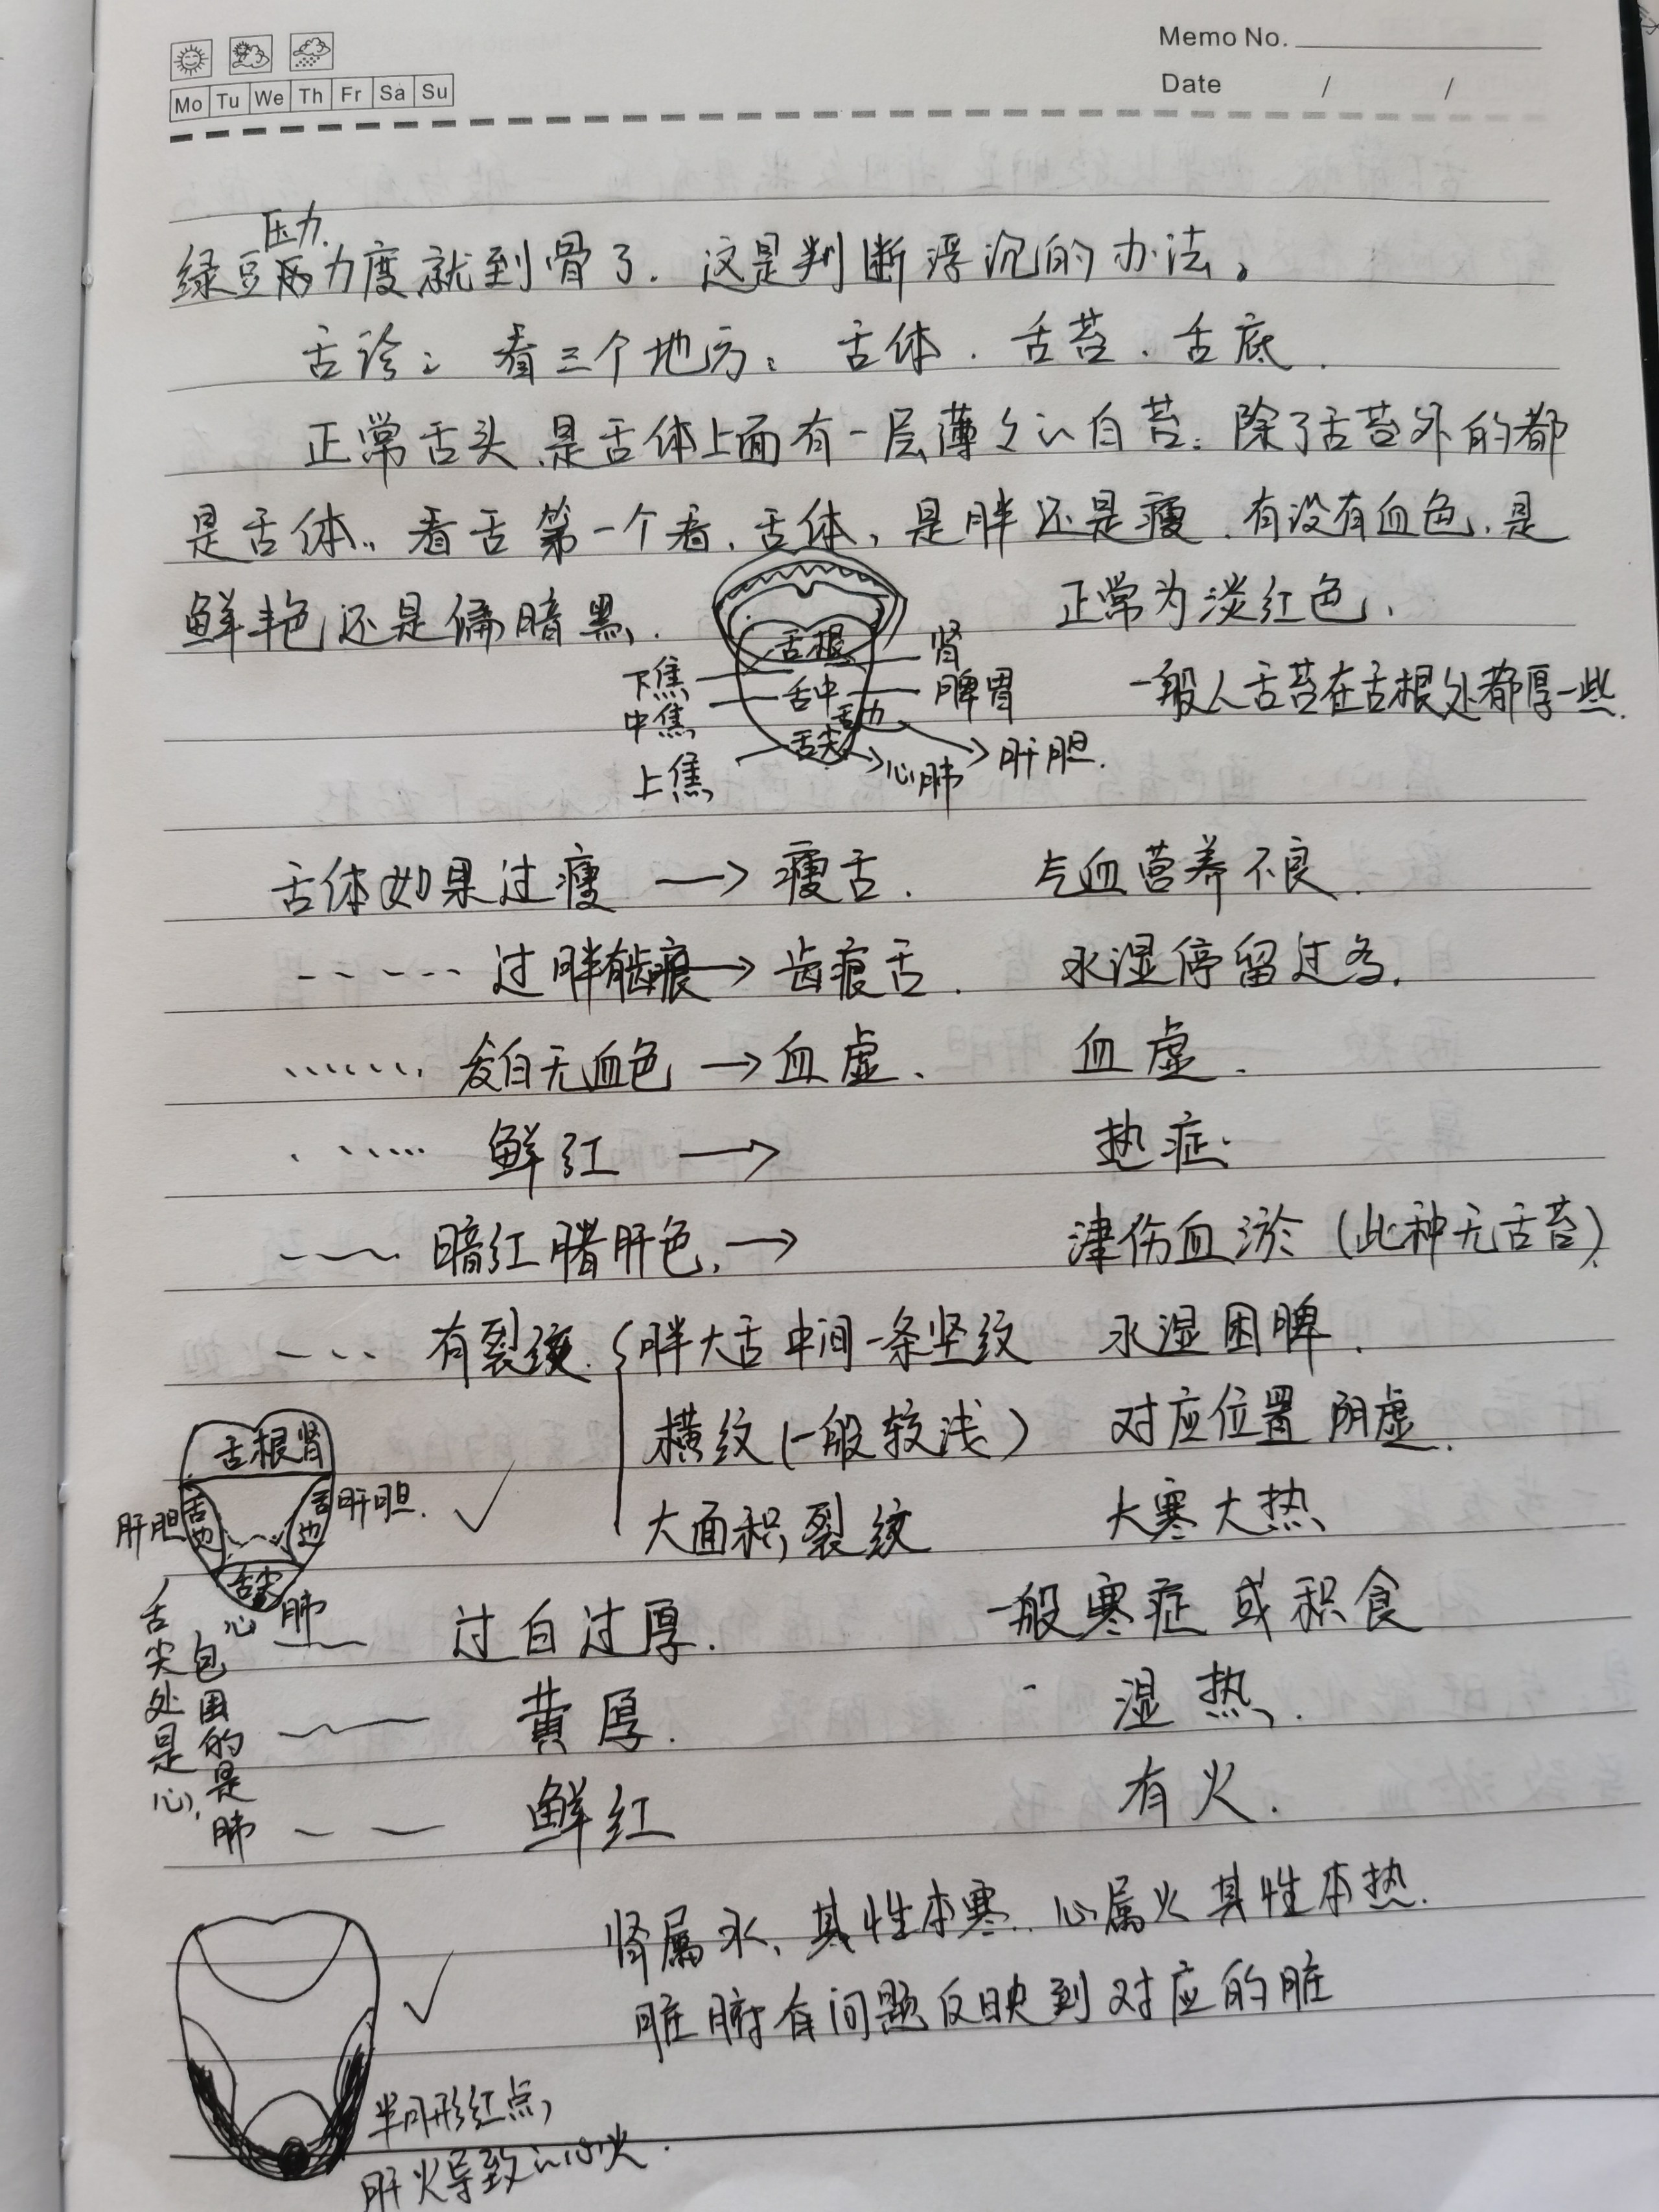 Memo No.
Mo Tu We Th Fr Sa Su
Date / /
压力
绿豆力度就到骨了.这是判断浮沉的办法。
舌诊:看三个地方:舌体.舌苔.舌底.
正常舌头.是舌体上面有一层薄々的白苔.除了舌苔外的都
是舌体.看舌第一个看.舌体,是胖还是瘦.有没有血色.是
鲜艳还是偏暗黑. 正常为淡红色.
舌根 肾
下焦 舌中 脾胃 一般人舌苔在舌根处都厚一些.
中焦 舌边
上焦 舌尖 心肺 肝胆.
舌体如果过瘦 → 瘦舌. 气血营养不良.
----- 过胖有齿痕 → 齿痕舌. 水湿停留过多.
....... 发白无血色 → 血虚. 血虚.
...... 鲜红 → 热症.
--- 暗红猪肝色. → 津伤血淤(此种无舌苔).
--- 有裂纹. 胖大舌中间一条竖纹 水湿困脾.
横纹(一般较浅) 对应位置阴虚.
大面积裂纹 大寒大热
舌根肾
肝胆 舌边 舌边 肝胆.
舌尖
心 肺
舌尖处是心,
包围的是肺
-- 过白过厚. 一般寒症或积食
-- 黄厚. 湿热.
-- 鲜红 有火.
肾属水,其性本寒..心属火其性本热.
脏腑有问题反映到对应的脏
半月形红点,
肝火导致的心火.